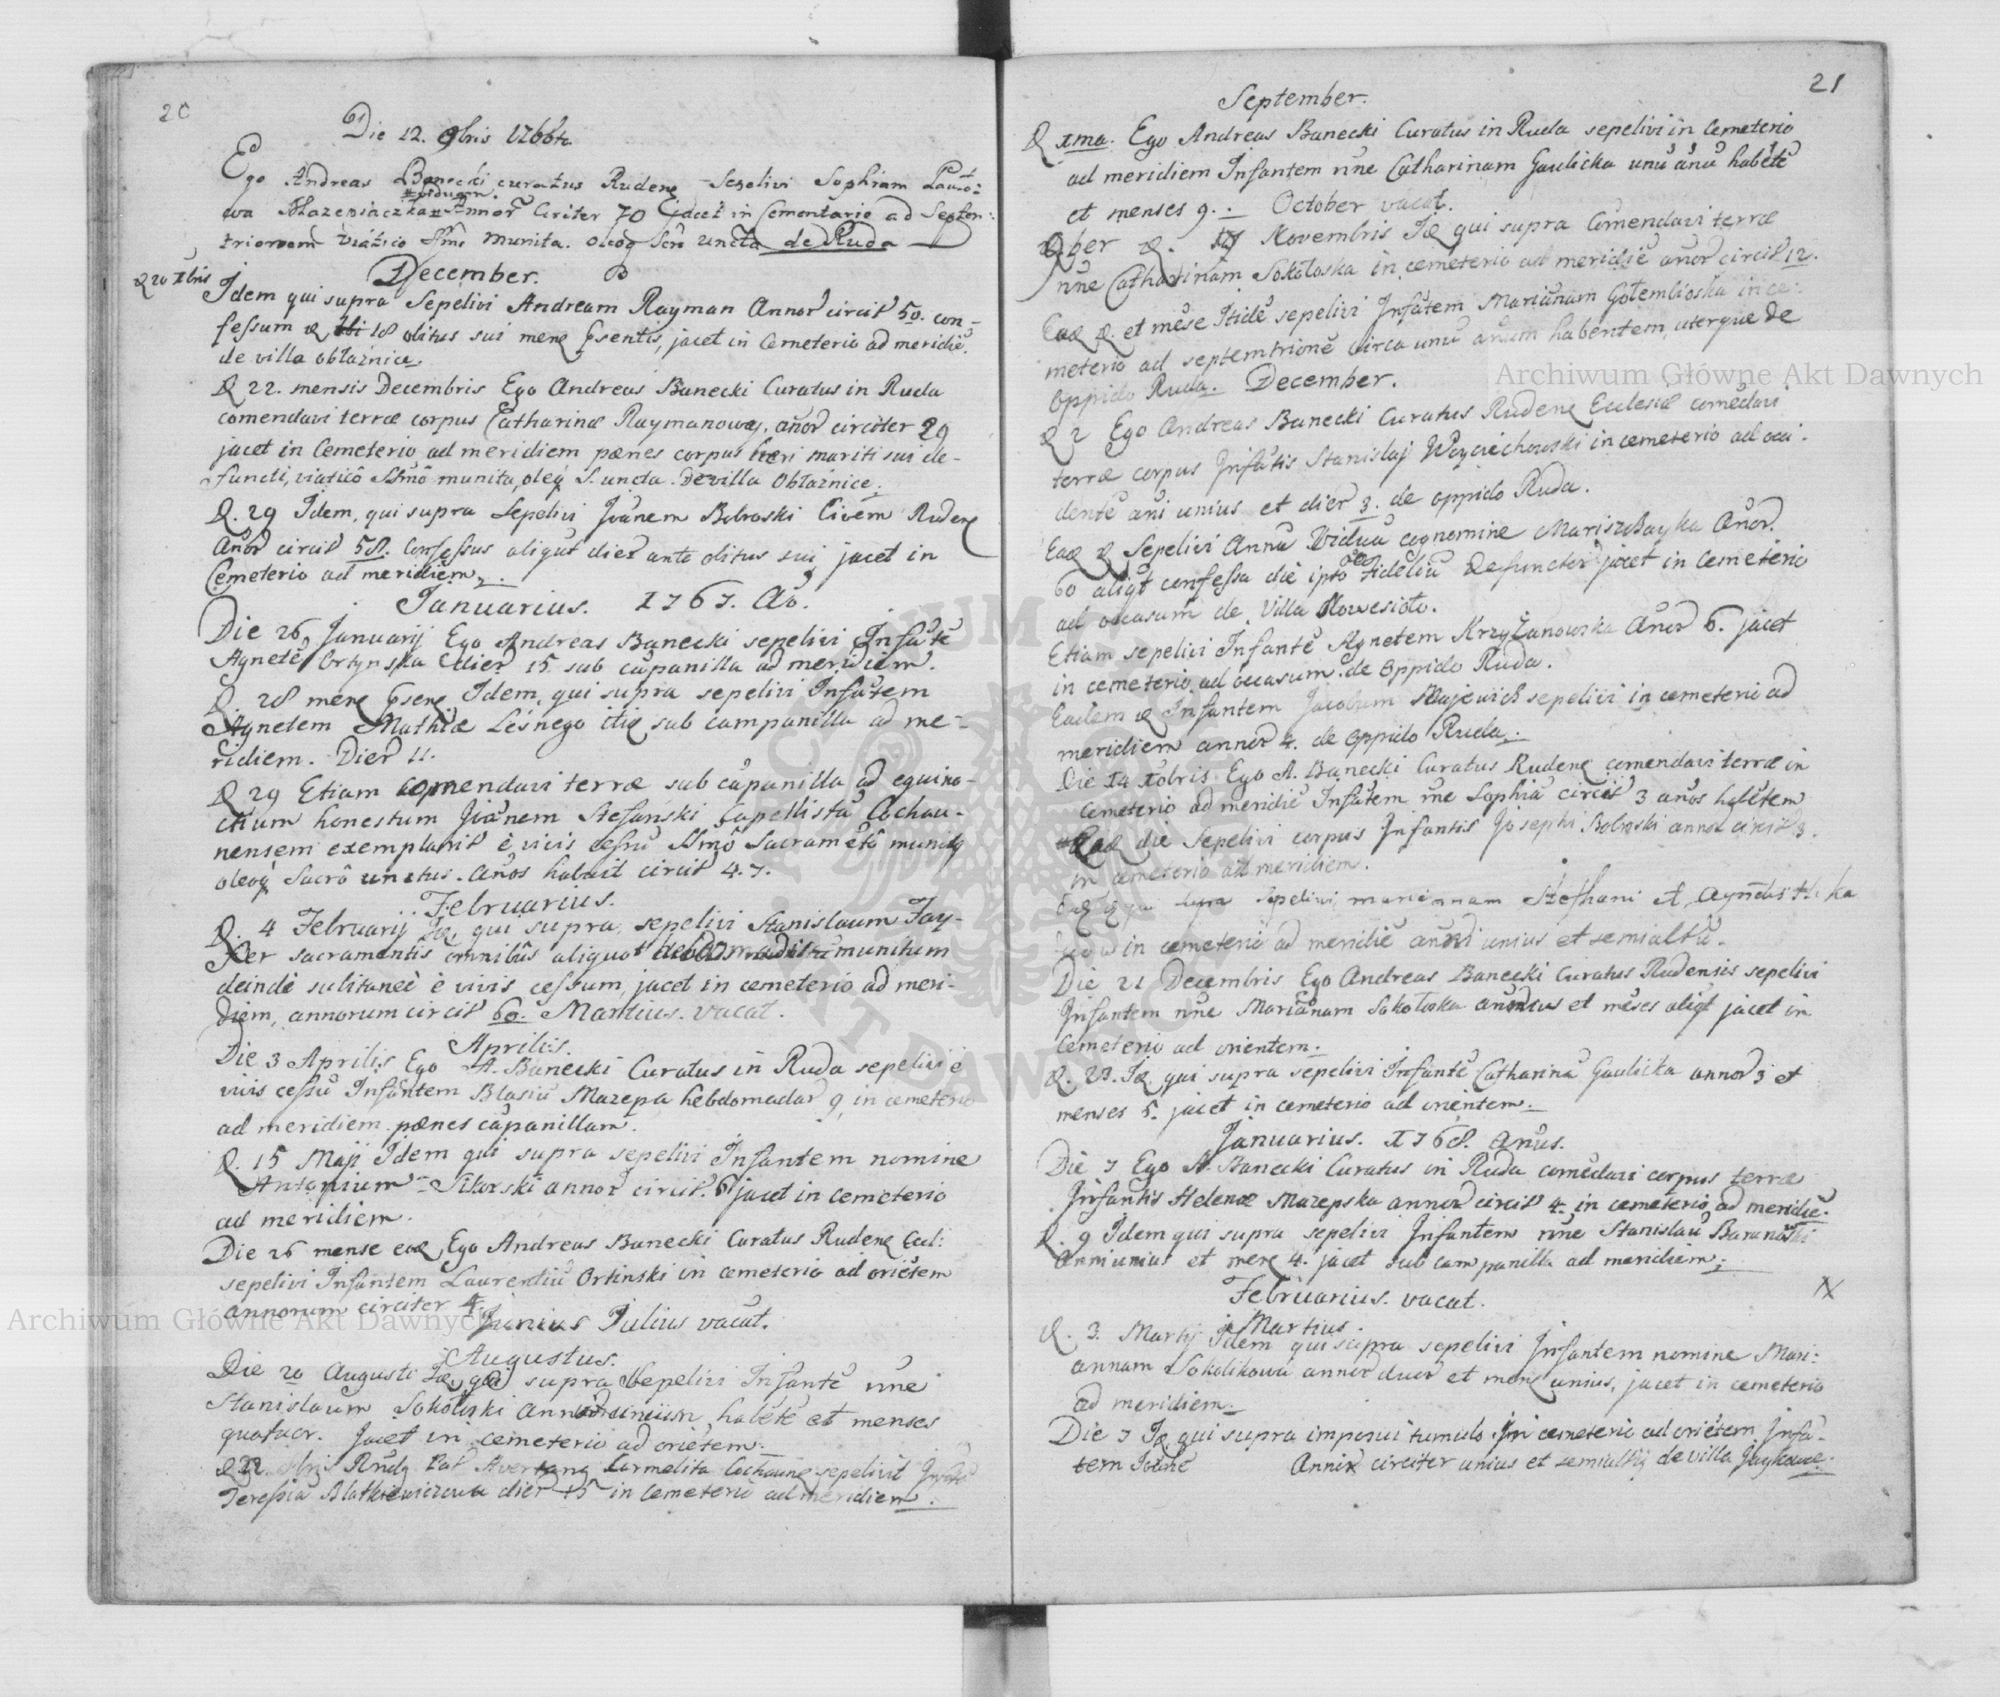 20
Die 12. 9bris 1766to
Ego Andreas Banecki curatus Rudene Sepelivi Sophiam
viduam.
Mazepiaczka Annor Circiter 70 jacet in Cementario ad Septen:
trionem viatico Ssmo munita. oleoq Sro uncta de Ruda
December.
D 20 Xbris
Idem qui supra Sepelivi Andream Rayman Annor circit 50. con-
fessum 18 obitus sui jacet in Cemeterio ad meridie.
de villa obłaznice.
D 22. mensis Decembris Ego Andreas Banecki Curatus in Ruda
comendavi terræ corpus Catharinæ Raymanowey, añor circiter 29
jacet in Cemeterio ad meridiem pænes corpus heri mariti sui de-
functi, viaticô Ssmô munita, oleq S. uncta. De villa Obłaznice.
D. 29 Idem, qui supra Sepelivi Joanem Bobroski Civem Rudene
Añor circit 58. Confessus aliqut dier ante obitus sui jacet in
Cemeterio ad meridiem.
Januarius. 1767. Ao.
Die 26 Januarij Ego Andreas Banecki sepelivi Infatē
Agnetē Ortynska dier 15 sub cāpanilla ad meridiem.
D 28 Idem, qui supra sepelivi Infātem
Agnetem Mathiæ Leśnego sub campanilla ad me-
ridiem. Dier 11.
D 29 Etiam comendavi terræ sub cāpanilla ad equino-
ctium honestum Joānem Stefanski Capellistā Cochau-
nensem exemplarit è vivis cessū Ssmô Sacramētô munitq
oleoq Sacrô unctus. Años habuit circit 47.
Februarius.
D. 4 Februarij Iđ, qui supra, sepelivi Stanislaum Fay-
fer sacramentis omnibus aliquot munitum
deindè subitaneè è vivis cessum, jacet in cemeterio ad meri-
diem, annorum circit 60. Martius. vacat.
Aprilis.
Die 3 Aprilis Ego A. Banecki Curatus in Ruda sepelivi è
vivis cessū Infantem Blasiū Mazepa hebdomadar 9 in cemeterio
ad meridiem pænes cāpanillam.
D. 15 Maji Idem qui supra sepelivi Infantem nomine
Antonium Sikorski annor circit. 6 jacet in cemeterio
ad meridiem.
Die 26 mense Ego Andreas Banecki Curatus Rudene Eccl:
sepelivi Infantem Laurentiū Ortinski in cemeterio ad oriētem
annorum circiter 4.
Junius Julius vacat.
Augustus.
Die 20 Augusti Iđ, qui supra Sepelivi Infantē nne
Stanislaum Sokołoski habētē et menses
quatuor. Jacet in cemeterio ad oriētem.
Carmelita sepelivit
Teressia dier 15 in Cemeterio ad meridiem.
21
September.
D 1ma. Ego Andreas Banecki Curatus in Ruda sepelivi in Cemeterio
ad meridiem Infantem nne Catharinam Gaulicka unū ānū habētē
et menses 9. October vacat.
9ber D. 17 Novembris Iđ qui supra Comendavi terræ
nne Catharinām Sokołoska in cemeterio ad meridiē añor circit 12.
Eađ D. et mēse Itidē sepelivi Infātem Mariānam Gołembioska in ce:
meterio ad septemtrionē circa unū añum habentem, uterque de
oppido Ruda. December.
D 2 Ego Andreas Banecki Curatus Rudene Ecclesiæ comēdavi
terræ corpus Infātis Stanislaj Woyciechowski in cemeterio ad occi:
dentē ani unius et dier 3. de oppido Ruda.
Eađ D Sepelivi Annā Viduā cognomine Añor.
60 aliqt confessa die Fideliū Defunctor jacet in Cemeterio
ad occasum de Villa Nowesioło.
Etiam sepelivi Infantē Agnetem Krzyżanowska Añor 6. jacet
in cemeterio ad occasum de oppido Ruda.
Eadem D Infantem Jacobum Majewich sepelivi in cemeterio ad
meridiem annor 4. de oppido Ruda.
Die 14 Xbris Ego A. Banecki Curatus Rudene comendavi terræ in
Cemeterio ad meridiē Infātem nne Sophiā circit 3 años habētem
Eađ die Sepelivi corpus Infantis Josephi Bobroski annor circit 3.
in cemeterio ad meridiem.
supra Sepelivi mariannam Stephani et
in cemeterio ad meridiē unius et semialtū.
Die 21 Decembris Ego Andreas Banecki Curatus Rudensis sepelivi
Infantem nne Mariānam Sokołoska et mēses aliqt jacet in
Cemeterio ad orientem.
D. 23. Iđ qui supra sepelivi Infantē Catharinā Gaulicka annor 3 et
menses 5. jacet in cemeterio ad orientem.
Januarius. 1768. anus.
Die 7 Ego A. Banecki Curatus in Ruda comēdavi corpus terræ
Infantis Helenæ Mazepska annor circit 4. in cemeterio ad meridiē.
D. 9 Idem qui supra sepelivi Infantem nne Stanislaū Baranoski
Anni unius et 4. jacet sub campanilla ad meridiem.
Februarius. vacat.
Martius.
D. 3. Martij Idem qui supra sepelivi Infantem nomine Mari:
annam Sokolikowa annor duor et unius, jacet in cemeterio
ad meridiem.
Die 7 Iđ qui supra imposui tumulo in cemeterio ad oriētem Infā-
tem Annir circiter unius et semialtij de villa
Archiwum Główne Akt Dawnych
Archiwum Główne Akt Dawnych
ARCHIWUM GŁÓWNE AKT DAWNYCH